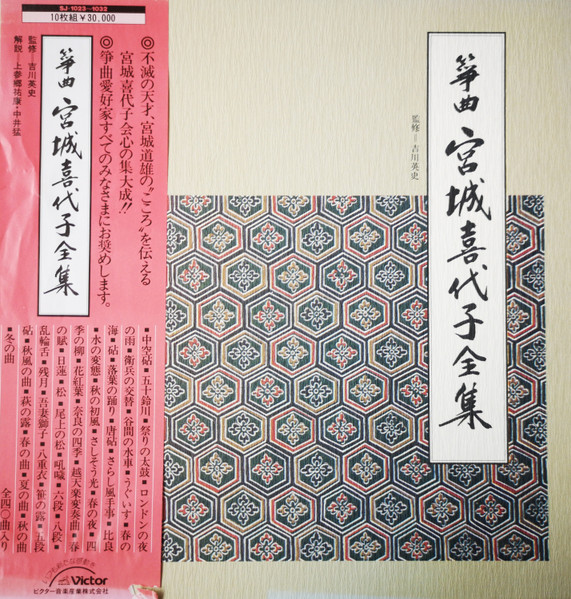 SJ-1023〜1032
10枚組￥30,000
◎不滅の天才、宮城道雄の“こころ”を伝える
宮城喜代子会心の集大成!!
◎箏曲愛好家すべてのみなさまにお奨めします。
箏曲 宮城喜代子全集
監修＝吉川英史
解説＝上参郷祐康・中井猛
■中空砧■五十鈴川■祭りの太鼓■ロンドンの夜
の雨■衛兵の交替■谷間の水車■うぐいす■春の
海■砧■落葉の踊り■唐砧■さらし風手事■比良
■水の変態■秋の初風■さしそう光■春の夜■四
季の柳■花紅葉■奈良の四季■越天楽変奏曲■春
の賦■日蓮■松■尾上の松■吼噦■六段■八段■
乱輪舌■残月■吾妻獅子■八重衣■笹の露■五段
砧■秋風の曲■萩の露■春の曲■夏の曲■秋の曲
■冬の曲
全四〇曲入り
Victor
ビクター音楽産業株式会社
箏曲 宮城喜代子全集
監修＝吉川英史